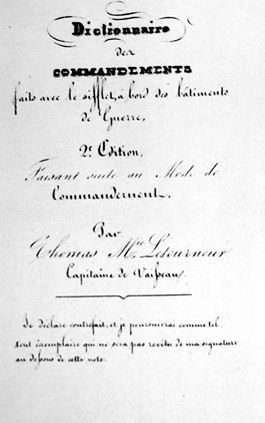 Dictionnaire
des
COMMANDEMENTS
faits avec le sifflet, à bord des bâtiments
de Guerre,
2e. Edition,
Faisant suite au Mode de
Commandement.
Par
Thomas Mie. Letourneur
Capitaine de Vaisseau.
Je déclare contrefait, et je poursuivrai comme tel
tout exemplaire qui ne sera pas revêtu de ma signature
au dessous de cette note.